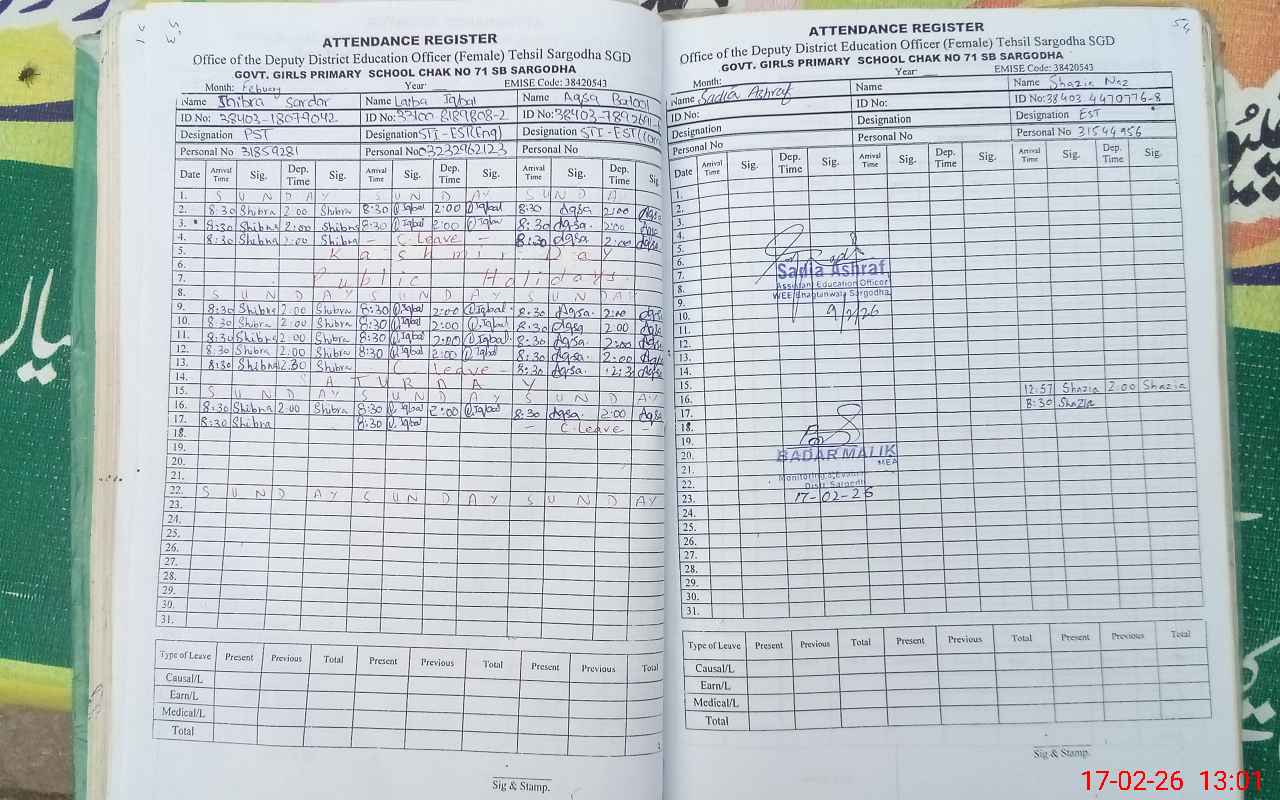 ATTENDANCE REGISTER
Office of the Deputy District Education Officer (Female) Tehsil Sargodha SGD
GOVT. GIRLS PRIMARY SCHOOL CHAK NO 71 SB SARGODHA
Month: Febuary Year EMISE Code: 38420543
Name Shibra Sardar Name Laiba Iqbal Name Aqsa Batool
ID No: 38403-18079042 ID No: 33100-8189808-2 ID No:
Designation PST Designation STI-EST(Eng) Designation STI-EST(Com
Personal No 31859281 Personal No 03232962123 Personal No
Date Arrival Time Sig. Dep. Time Sig. Arrival Time Sig. Dep. Time Sig. Arrival Time Sig. Dep. Time Sig
1. S U N D A Y S U N D A Y S U N D A
2. 8:30 Shibra 2:00 Shibra 8:30 Iqbal 2:00 Iqbal 8:30 Aqsa 2:00 Aqsa
3. 8:30 Shibra 2:00 Shibra 8:30 Iqbal 2:00 Iqbal 8:30 Aqsa. 2:00
4. 8:30 Shibra 2:00 Shibra - C.Leave - 8:30 Aqsa 2:00 Aqsa
5. Kashmir Day
6.
7. Public Holidays.
8. S U N D A Y S U N D A Y S U N D A Y
9. 8:30 Shibra 2:00 Shibra 8:30 Iqbal 2:00 Iqbal 8:30 Aqsa. 2:00 Aqsa
10. 8:30 Shibra 2:00 Shibra 8:30 Iqbal 2:00 Iqbal 8:30 Aqsa 2:00 Aqsa
11. 8:30 Shibra 2:00 Shibra 8:30 Iqbal 2:00 Iqbal 8:30 Aqsa. 2:00 Aqsa
12. 8:30 Shibra 2:00 Shibra 8:30 Iqbal 2:00 Iqbal 8:30 Aqsa. 2:00 Aqsa
13. 8:30 Shibra 2:30 Shibra - C Leave - 8:30 Aqsa. 12:30 Aqsa
14. S A T U R D A Y
15. S U N D A Y S U N D A Y S U N D A Y
16. 8:30 Shibra 2:00 Shibra 8:30 Iqbal 2:00 Iqbal 8:30 Aqsa 2:00 Aqsa
17. 8:30 Shibra 8:30 Iqbal - C.Leave -
18.
19.
20.
21.
22. S U N D A Y S U N D A Y S U N D A Y
23.
24.
25.
26.
27.
28.
29.
30.
31.
Type of Leave Present Previous Total Present Previous Total Present Previous Total
Causal/L
Earn/L
Medical/L
Total
3
Sig & Stamp.
54
ATTENDANCE REGISTER
Office of the Deputy District Education Officer (Female) Tehsil Sargodha SGD
GOVT. GIRLS PRIMARY SCHOOL CHAK NO 71 SB SARGODHA
Month: Year EMISE Code: 38420543
Name Sadia Ashraf Name Name Shazia Naz
ID No: ID No: ID No: 38403-4470776-8
Designation Designation Designation EST
Personal No Personal No Personal No 31544956
Date Arrival Time Sig. Dep. Time Sig. Arrival Time Sig. Dep. Time Sig. Arrival Time Sig. Dep. Time Sig.
1.
2.
3.
4.
5.
6.
7. Sadia Ashraf
8. Assistant Education Officer
WEE Bhagtanwala Sargodha
9.
10. 9/2/26
11.
12.
13.
14.
15. 12:57 Shazia 2:00 Shazia
16. 8:30 Shazia
17.
18.
19.
20. BADAR MALIK
MEA
21.
22. Monitoring & Evalu
Distt. Sargodh
23. 17-02-26
24.
25.
26.
27.
28.
29.
30.
31.
Type of Leave Present Previous Total Present Previous Total Present Previous Total
Causal/L
Earn/L
Medical/L
Total
Sig & Stamp.
17-02-26 13:01